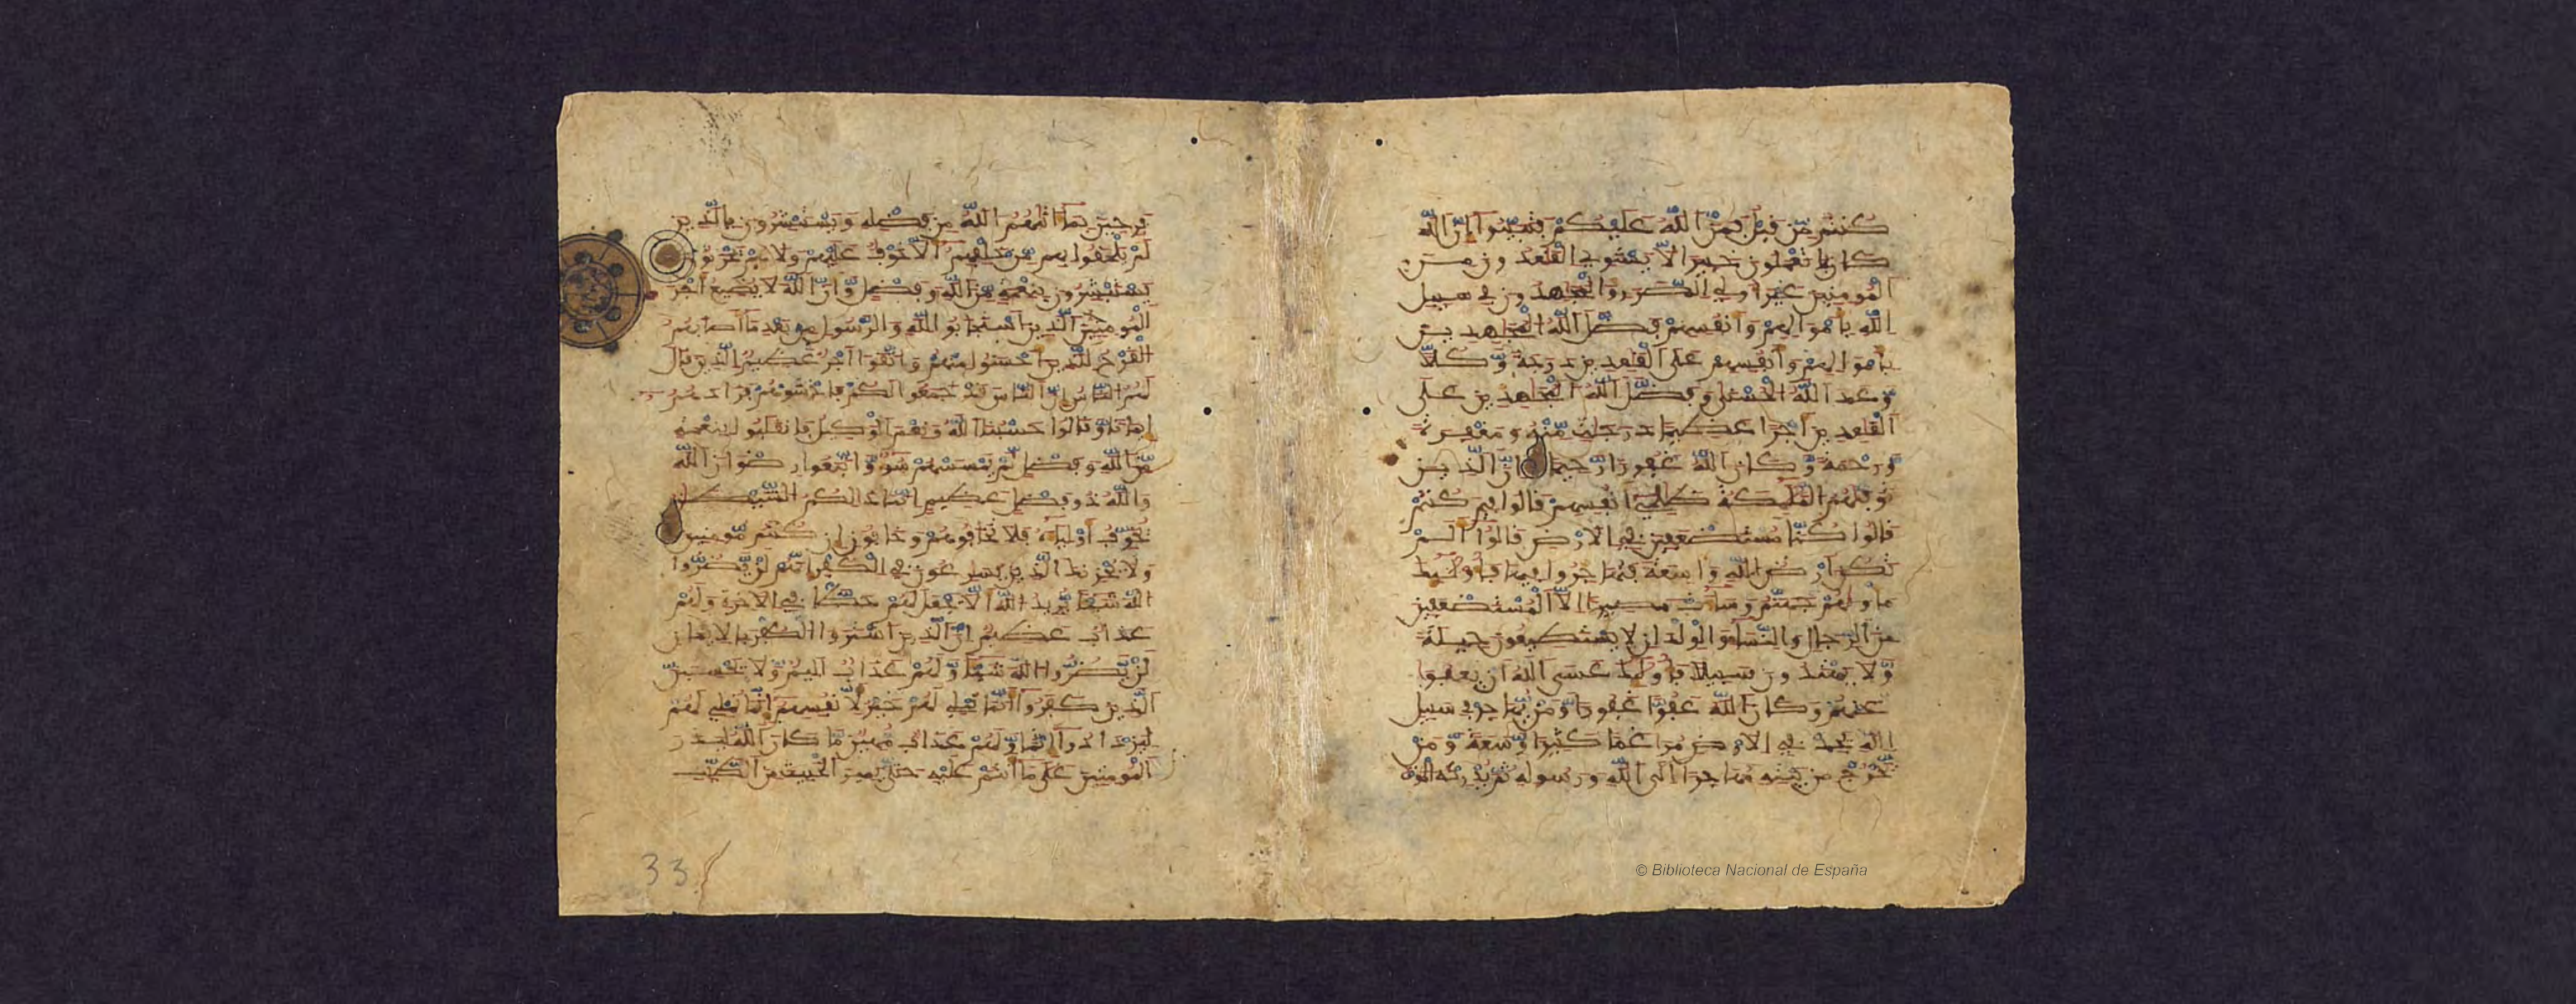 كنتم من قبل فمن الله عليكم فتبينوا ان الله
كان بما تعملون خبيرا لا يستوي القعدون من
المومنين غير اولي الضرر والمجهدون في سبيل
الله باموالهم وانفسهم فضل الله المجهدين
باموالهم وانفسهم على القعدين درجة وكلا
وعد الله الحسنى وفضل الله المجهدين على
القعدين اجرا عظيما درجت منه ومغفرة
ورحمة وكان الله غفورا رحيما ان الذين
توفيهم المليكة ظالمي انفسهم قالوا فيم كنتم
قالوا كنا مستضعفين في الارض قالوا الم
تكن ارض الله واسعة فتهاجروا فيها فاوليك
ماويهم جهنم وساءت مصيرا الا المستضعفين
من الرجال والنساء والولدان لا يستطيعون حيلة
ولا يهتدون سبيلا فاوليك عسى الله ان يعفوا
عنهم وكان الله عفوا غفورا ومن يهاجر في سبيل
الله يجد في الارض مراغما كثيرا وسعة ومن
يخرج من بيته مهاجرا الى الله ورسوله ثم يدركه الموت
فرحين بما اتيهم الله من فضله ويستبشرون بالذين
لم يلحقوا بهم من خلفهم الا خوف عليهم ولا هم يحزنون
يستبشرون بنعمة من الله وفضل وان الله لا يضيع اجر
المومنين الذين استجابوا لله والرسول من بعد ما اصابهم
القرح للذين احسنوا منهم واتقوا اجر عظيم الذين قال
لهم الناس ان الناس قد جمعوا لكم فاخشوهم فزادهم
ايمانا وقالوا حسبنا الله ونعم الوكيل فانقلبوا بنعمة
من الله وفضل لم يمسسهم سوء واتبعوا رضوان الله
والله ذو فضل عظيم انما ذلكم الشيطان
يخوف اولياءه فلا تخافوهم وخافون ان كنتم مومنين
ولا يحزنك الذين يسارعون في الكفر انهم لن يضروا
الله شيئا يريد الله الا يجعل لهم حظا في الاخرة ولهم
عذاب عظيم ان الذين اشتروا الكفر بالايمان
لن يضروا الله شيئا ولهم عذاب اليم ولا يحسبن
الذين كفروا انما نملي لهم خير لانفسهم انما نملي لهم
ليزدادوا اثما ولهم عذاب مهين ما كان الله ليذر
المومنين على ما انتم عليه حتى يميز الخبيث من الطيب
33
© Biblioteca Nacional de España